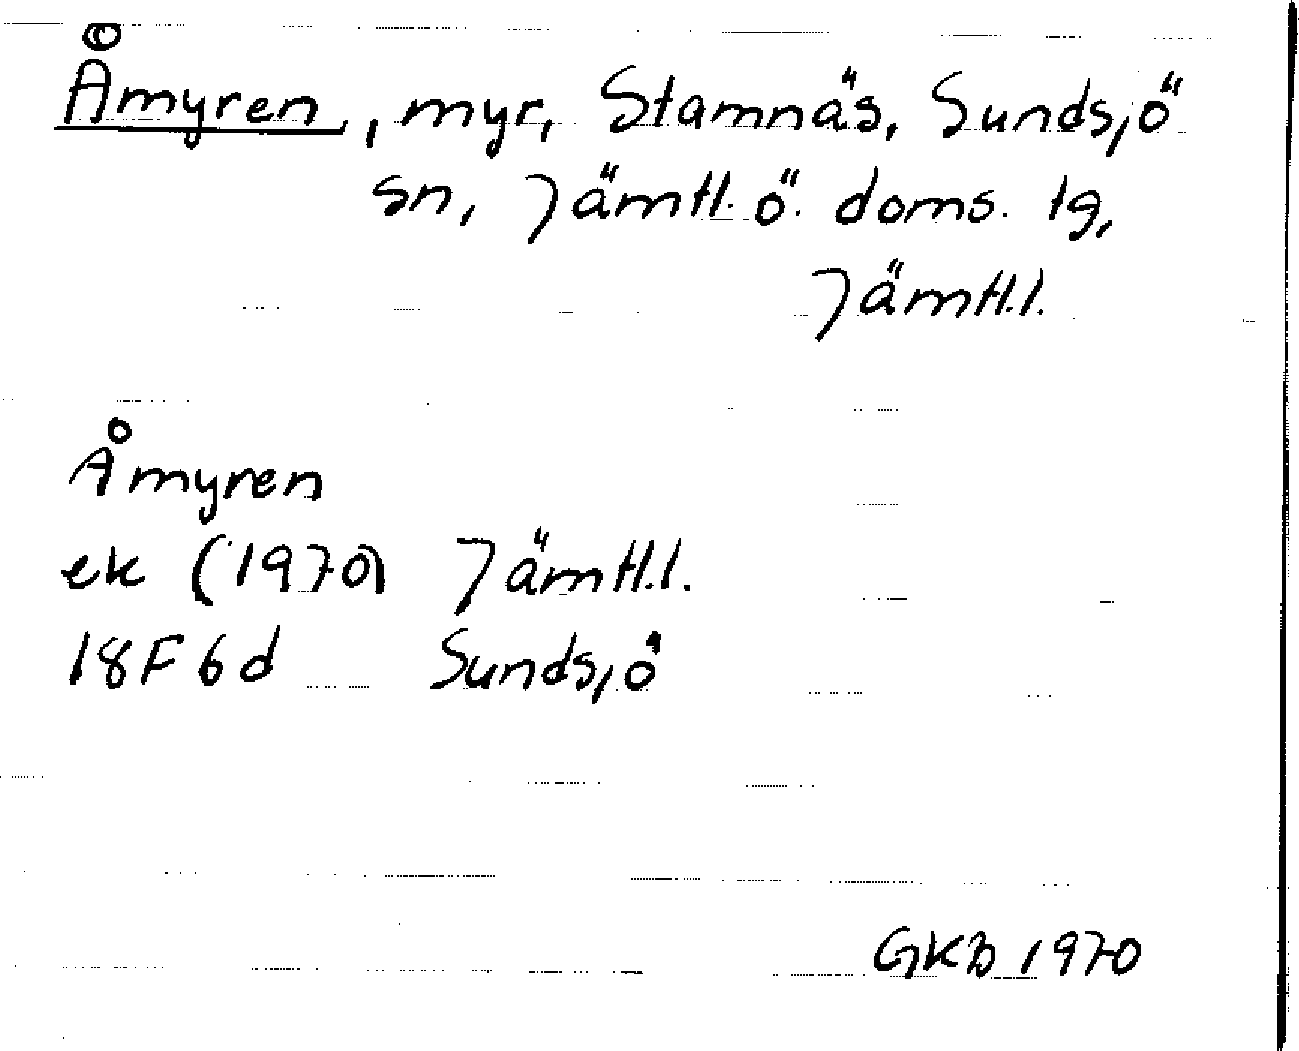 Åmyren, myr, Stamnäs, Sundsjö
sn, Jämtl. ö. doms. tg,
Jämtl.l.
Åmyren
ek (1970) Jämtl.l.
18F6d Sundsjö
GKB 1970